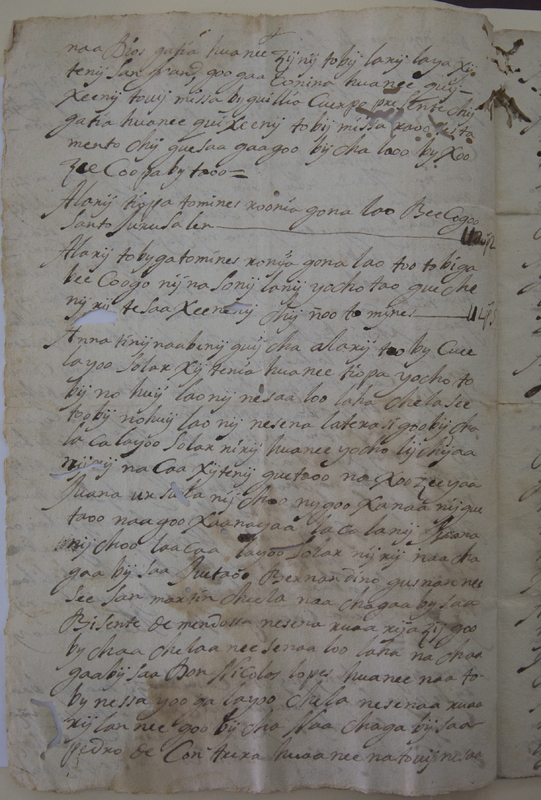 naa Dios gutia huanee Zijnij tobij larij laya Xij
tenij San fran goo gaa tomina huanee quij
Xeenij touij missa byquillia Cuerpo presente chij
gatia huanee quiXeenij tobij missa raoo
mento chij quesaa gaagoo bij cha looo by Xoo
Zee Coopa by taoo =
Alarij tiopa tomines roonia gona lao BeeCogoo
Santo Jurusalen
Alarij tobyga tomines ronija gona lao too tobiga
bee Coogo nij na Sonij lanij yocho tao que che
nij rij tesaa Xeenenij chij noo to mines
Anna tinij naabenij quij cha alarij too by Cuee
layoo Solar Xij tenia huanee tiopa yocho to
bij no huij laonij nesaa loo laha chelasee
tooby nohuij lao nij nesena latexa goobij cha
la ca layoo Solar nirij huanee yocho lijchijaa
rij na Caa Xijtenij quetaoo na Xoo Zeeyaa
Juana ursula nij choo nygoo Xanaa nij que
taoo naagoo Xaanayaa la Ca lanij
nij choo laaCaa layoo Solar nij rij naa cha
gaa bij saa Quetaoo Bernardino gusman nee
See San martin chela naa chagaa by saa
Bisente de mendossa nesena xuaa rija Zij goo
by chaa chelaa nee senaa loo laha na chaa
gaabij saa Don Nicolas lopes huanee naa to
by nessa yoo ga layoo chela nesenaa xuaa
rij lan nee goo bij cha naa chaga bij saa
Pedro de Contrera huaanee natouij nesaa